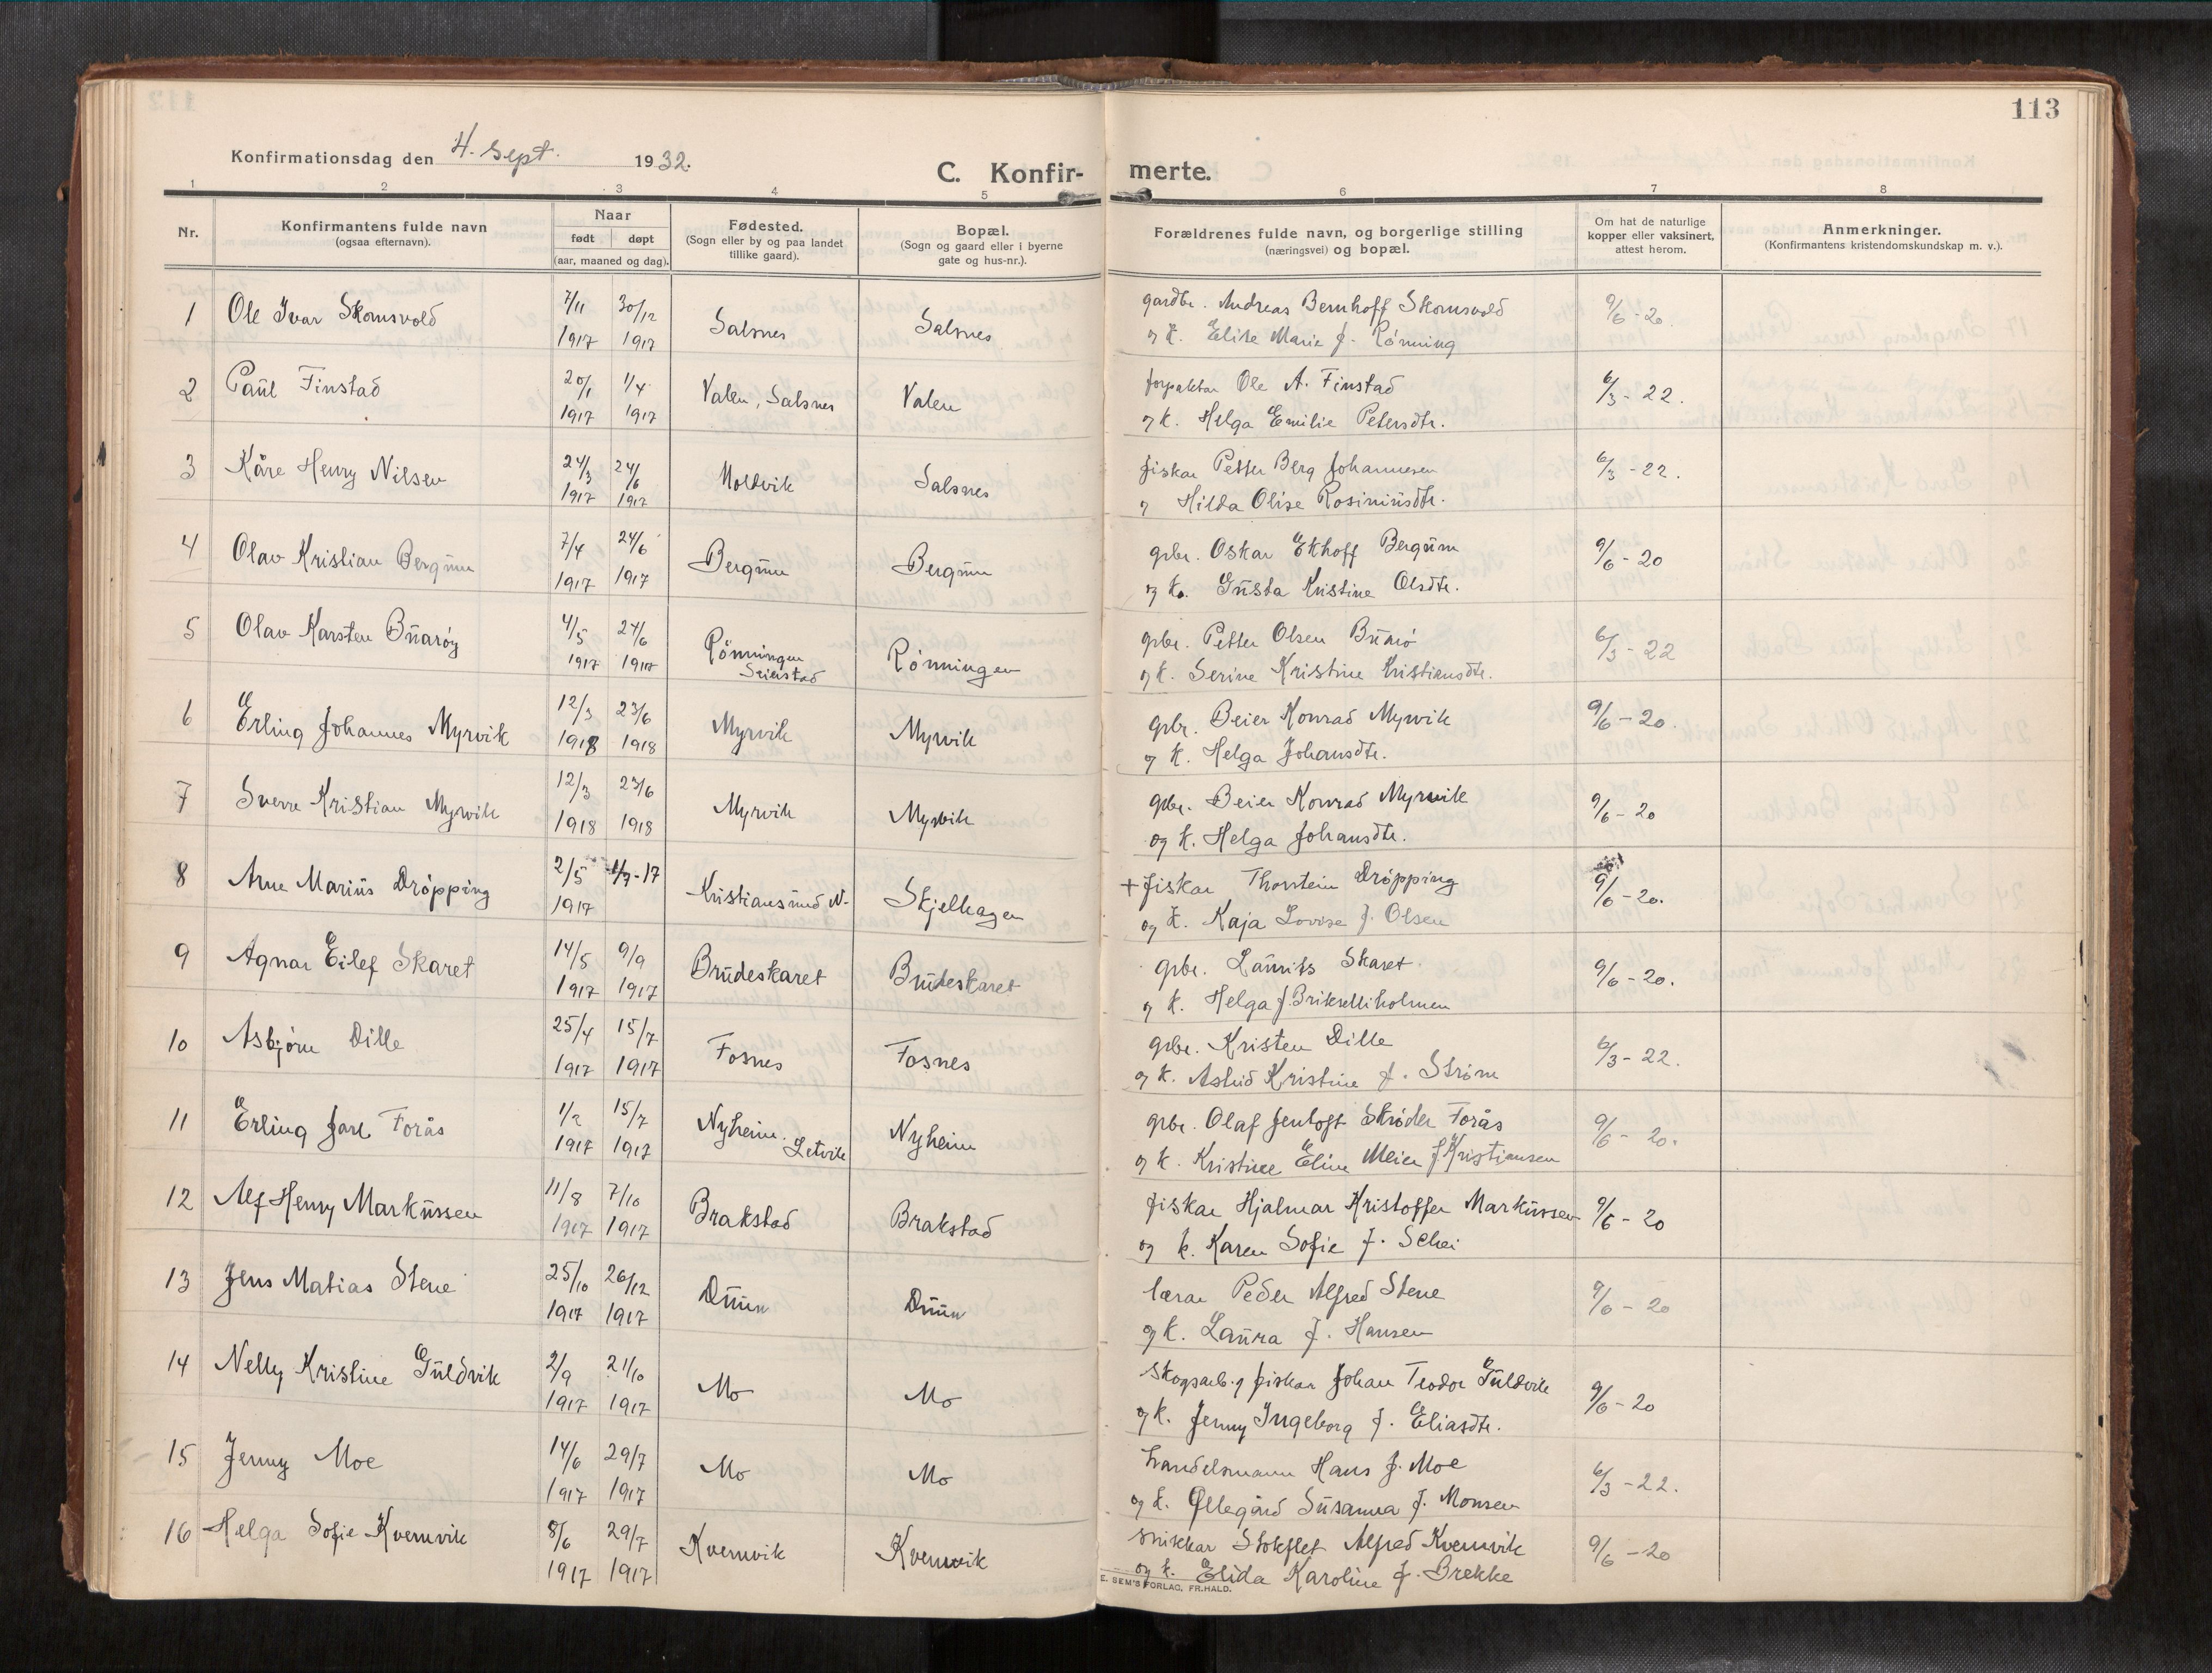 113
Konfirmationsdag den 4. Sept. 1932.
C. Konfir- merte.
1 2 3 4 5 6 7 8
Nr.
Konfirmantens fulde navn
(ogsaa efternavn).
Naar
født døpt
(aar, maaned og dag).
Fødested.
(Sogn eller by og paa landet
tillike gaard).
Bopæl.
(Sogn og gaard eller i byerne
gate og hus-nr.).
Forældrenes fulde navn, og borgerlige stilling
(næringsvei) og bopæl.
Om hat de naturlige
kopper eller vaksinert,
attest herom.
Anmerkninger.
(Konfirmantens kristendomskundskap m. v.).
1 Ole Ivar Skomsvold 7/11 30/12 Salsnes Salsnes gardbr. Andreas Bernhoff Skomsvold 9/6-20.
1917 1917 og k. Elise Marie f. Rønning
2 Paul Finstad 20/1 1/4 Valen, Salsnes Valen forpaktar Ole A. Finstad 6/3-22.
1917 1917 og k. Helga Emilie Petersdtr.
3 Kåre Henry Nilsen 24/3 24/6 Moldvik Salsnes fiskar Petter Berg Johannesen 6/3-22.
1917 1917 og Hilda Olise Rosiniusdtr.
4 Olav Kristian Bergum 7/4 24/6 Bergum Bergum grbr. Oskar Ekhoff Bergum 9/6-20
1917 1917 og k. Gusta Kristine Olsdtr.
5 Olav Karsten Buarøy 4/5 24/6 Rønningen Rønningen grbr. Petter Olsen Buarö 6/3-22
1917 1917 Seierstad og k. Serine Kristine Kristiansdtr.
6 Erling Johannes Myrvik 12/3 23/6 Myrvik Myrvik grbr. Beier Konrad Myrvik 9/6-20.
1918 1918 og k. Helga Johansdtr.
7 Sverre Kristian Myrvik 12/3 23/6 Myrvik Myrvik grbr. Beier Konrad Myrvik 9/6-20
1918 1918 og k. Helga Johansdtr.
8 Arne Marius Drøpping 2/5 1/7-17 Kristiansund N. Skjelhagen + fiskar Thorstein Drøpping 9/6-20.
1917 og k. Kaja Lovise f. Olsen
9 Agnar Eilef Skaret 14/5 9/9 Brudeskaret Brudeskaret grbr. Laurits Skaret 9/6-20.
1917 1917 og k. Helga f. Brikselliholmen
10 Asbjørn Dille 25/4 15/7 Fosnes Fosnes grbr. Kristen Dille 6/3-22.
1917 1917 og k. Astrid Kristine f. Strøm
11 Erling Jarl Forås 1/2 15/7 Nyheim. Letvik Nyheim grbr. Olaf Jentoft Skrøder Forås 9/6-20.
1917 1917 og k. Kristine Eline Meier f. Kristiansen
12 Alf Henry Markussen 11/8 7/10 Brakstad Brakstad fiskar Hjalmar Kristoffer Markussen 9/6-20
1917 1917 og k. Karen Sofie f. Schei
13 Jens Matias Stene 25/10 26/12 Duun Duun lærar Peder Alfred Stene 9/6-20
1917 1917 og k. Laura f. Hansen
14 Nelly Kristine Guldvik 2/9 21/10 Mo Mo skogsarb. og fiskar Johan Teodor Guldvik 9/6-20
1917 1917 og k. Jenny Ingeborg f. Eliasdtr.
15 Jenny Moe 14/6 29/7 Mo Mo handelsmann Hans J. Moe 6/3-22.
1917 1917 og k. Øllegård Susanna f. Monsen
16 Helga Sofie Kvernvik 8/6 29/7 Kvernvik Kvernvik snikkar Stokflet Alfred Kvernvik 9/6-20
1917 1917 og k. Elida Karoline f. Brekke
E. SEM'S FORLAG, FR.HALD.